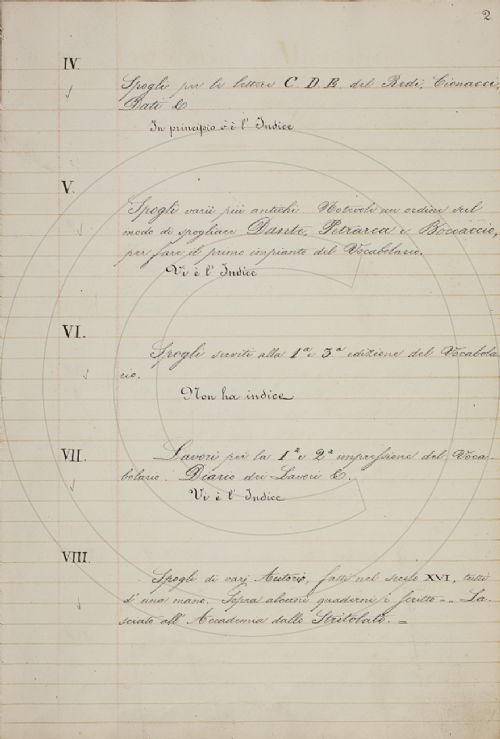 2
IV.
Spogli per le lettere C. D. E. del Redi, Cionacci,
Dati &
In principio v'è l'Indice
V.
Spogli varii più antichi. Notevoli un ordine sul
modo di spogliare Dante, Petrarca e Boccaccio,
per fare il primo impianto del Vocabolario.
Vi è l'Indice
VI.
Spogli serviti alla 1ª e 3ª edizione del Vocabola
rio.
Non ha indice
VII.
Lavori per la 1ª e 2ª impressione del Voca-
bolario. Diario dei Lavori &.
Vi è l'Indice
VIII.
Spogli di varj Autori, fatti nel secolo XVI, tutti
d'una mano. Sopra alcuni quaderni è scritto -- La-
sciato all'Accademia dallo Stritolato. =